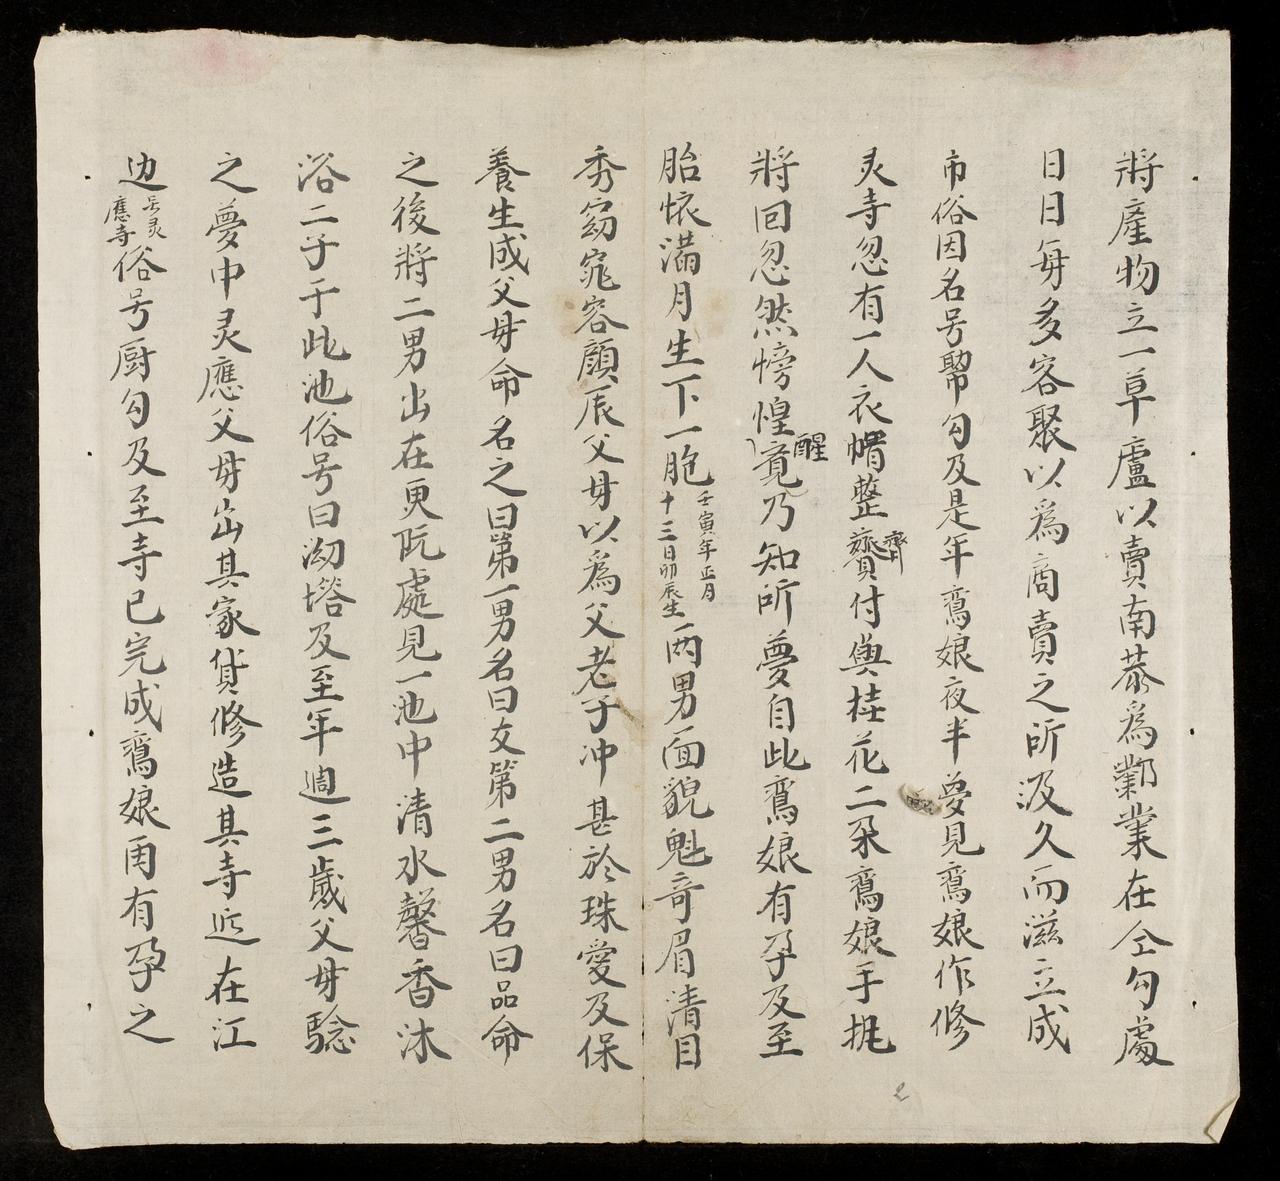 將產物立一草廬以賣南茶爲鄴業在仝勾處
日日每多客聚以爲商賣之所汲久而滋立成
市俗因名号幚勾及是年鸞娘夜半夢見鸞娘作修
灵寺忽有一人衣帽整齎齊付與桂花二朶鸞娘手捤
將回忽然愰惶竟醒乃知所夢自此鸞娘有孕及至
胎懷滿月生下一胞壬寅年正月十三日卯辰生兩男面貌魁奇眉清目
秀窈窕容顔辰父母以爲父老子冲甚於珠愛及保
養生成父母命名之曰第一男名曰文第二男名曰品命
之後將二男出在更阮處見一池中清水馨香沐
浴二子于此池俗号曰泑塔及至年週三歲父母騐
之夢中灵應父母出其家貲修造其寺近在江
边号灵應寺俗号厨勾及至寺已完成鸞娘再有孕之
2